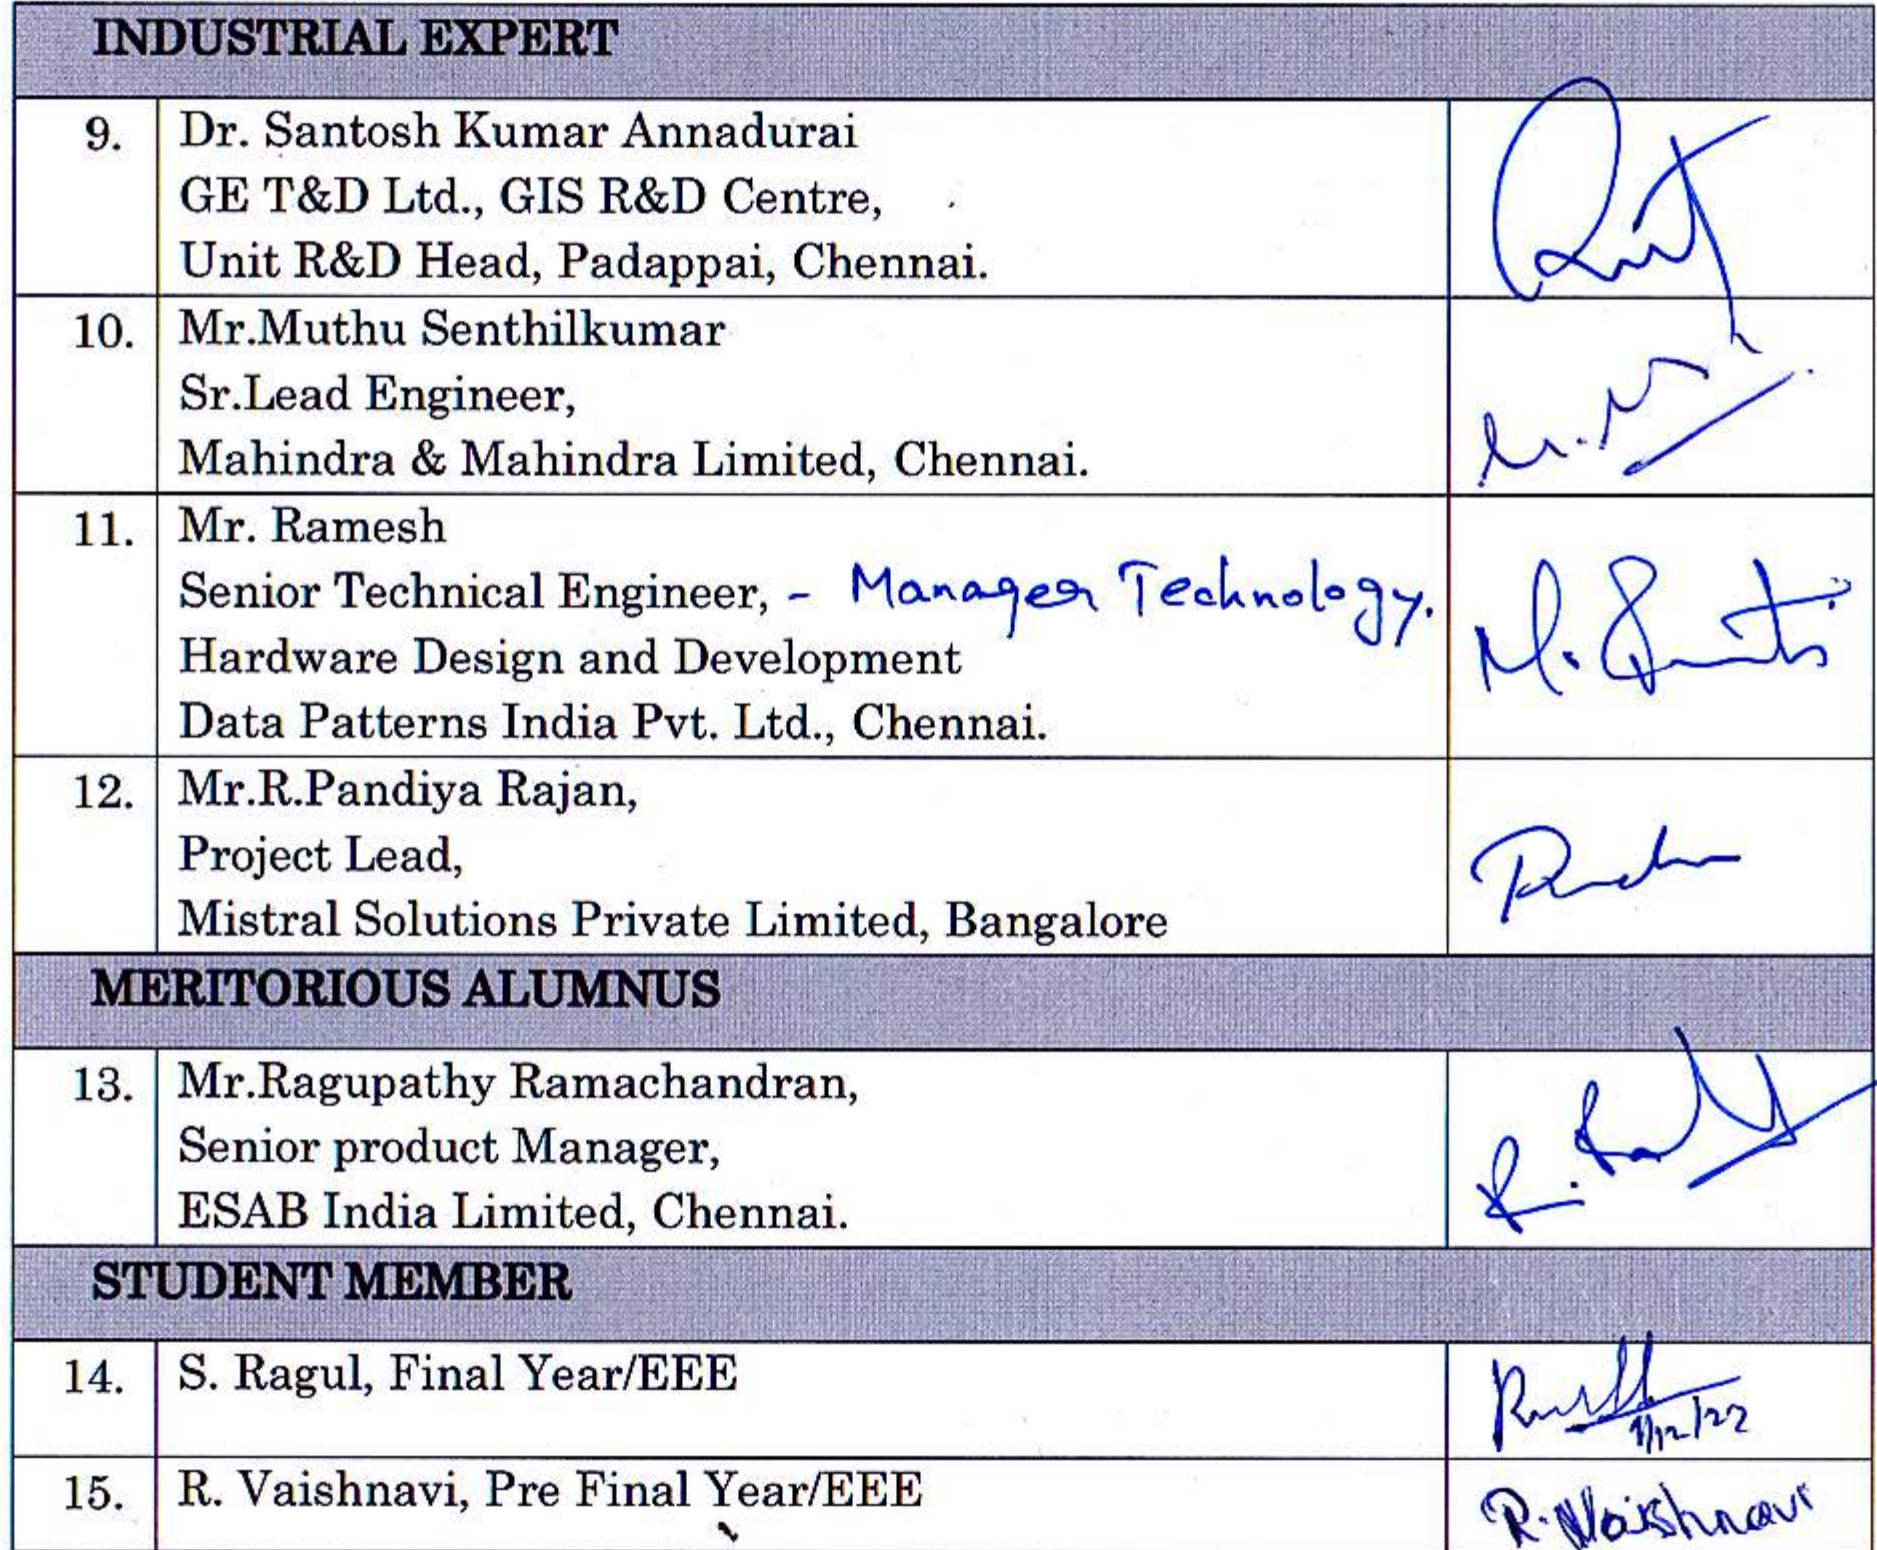 INDUSTRIAL EXPERT
9. Dr. Santosh Kumar Annadurai
GE T&D Ltd., GIS R&D Centre,
Unit R&D Head, Padappai, Chennai.
10. Mr.Muthu Senthilkumar
Sr.Lead Engineer,
Mahindra & Mahindra Limited, Chennai.
11. Mr. Ramesh
Senior Technical Engineer, - Manager Technology.
Hardware Design and Development
Data Patterns India Pvt. Ltd., Chennai.
12. Mr.R.Pandiya Rajan,
Project Lead,
Mistral Solutions Private Limited, Bangalore
MERITORIOUS ALUMNUS
13. Mr.Ragupathy Ramachandran,
Senior product Manager,
ESAB India Limited, Chennai.
STUDENT MEMBER
14. S. Ragul, Final Year/EEE
15. R. Vaishnavi, Pre Final Year/EEE R. Vaishnavi